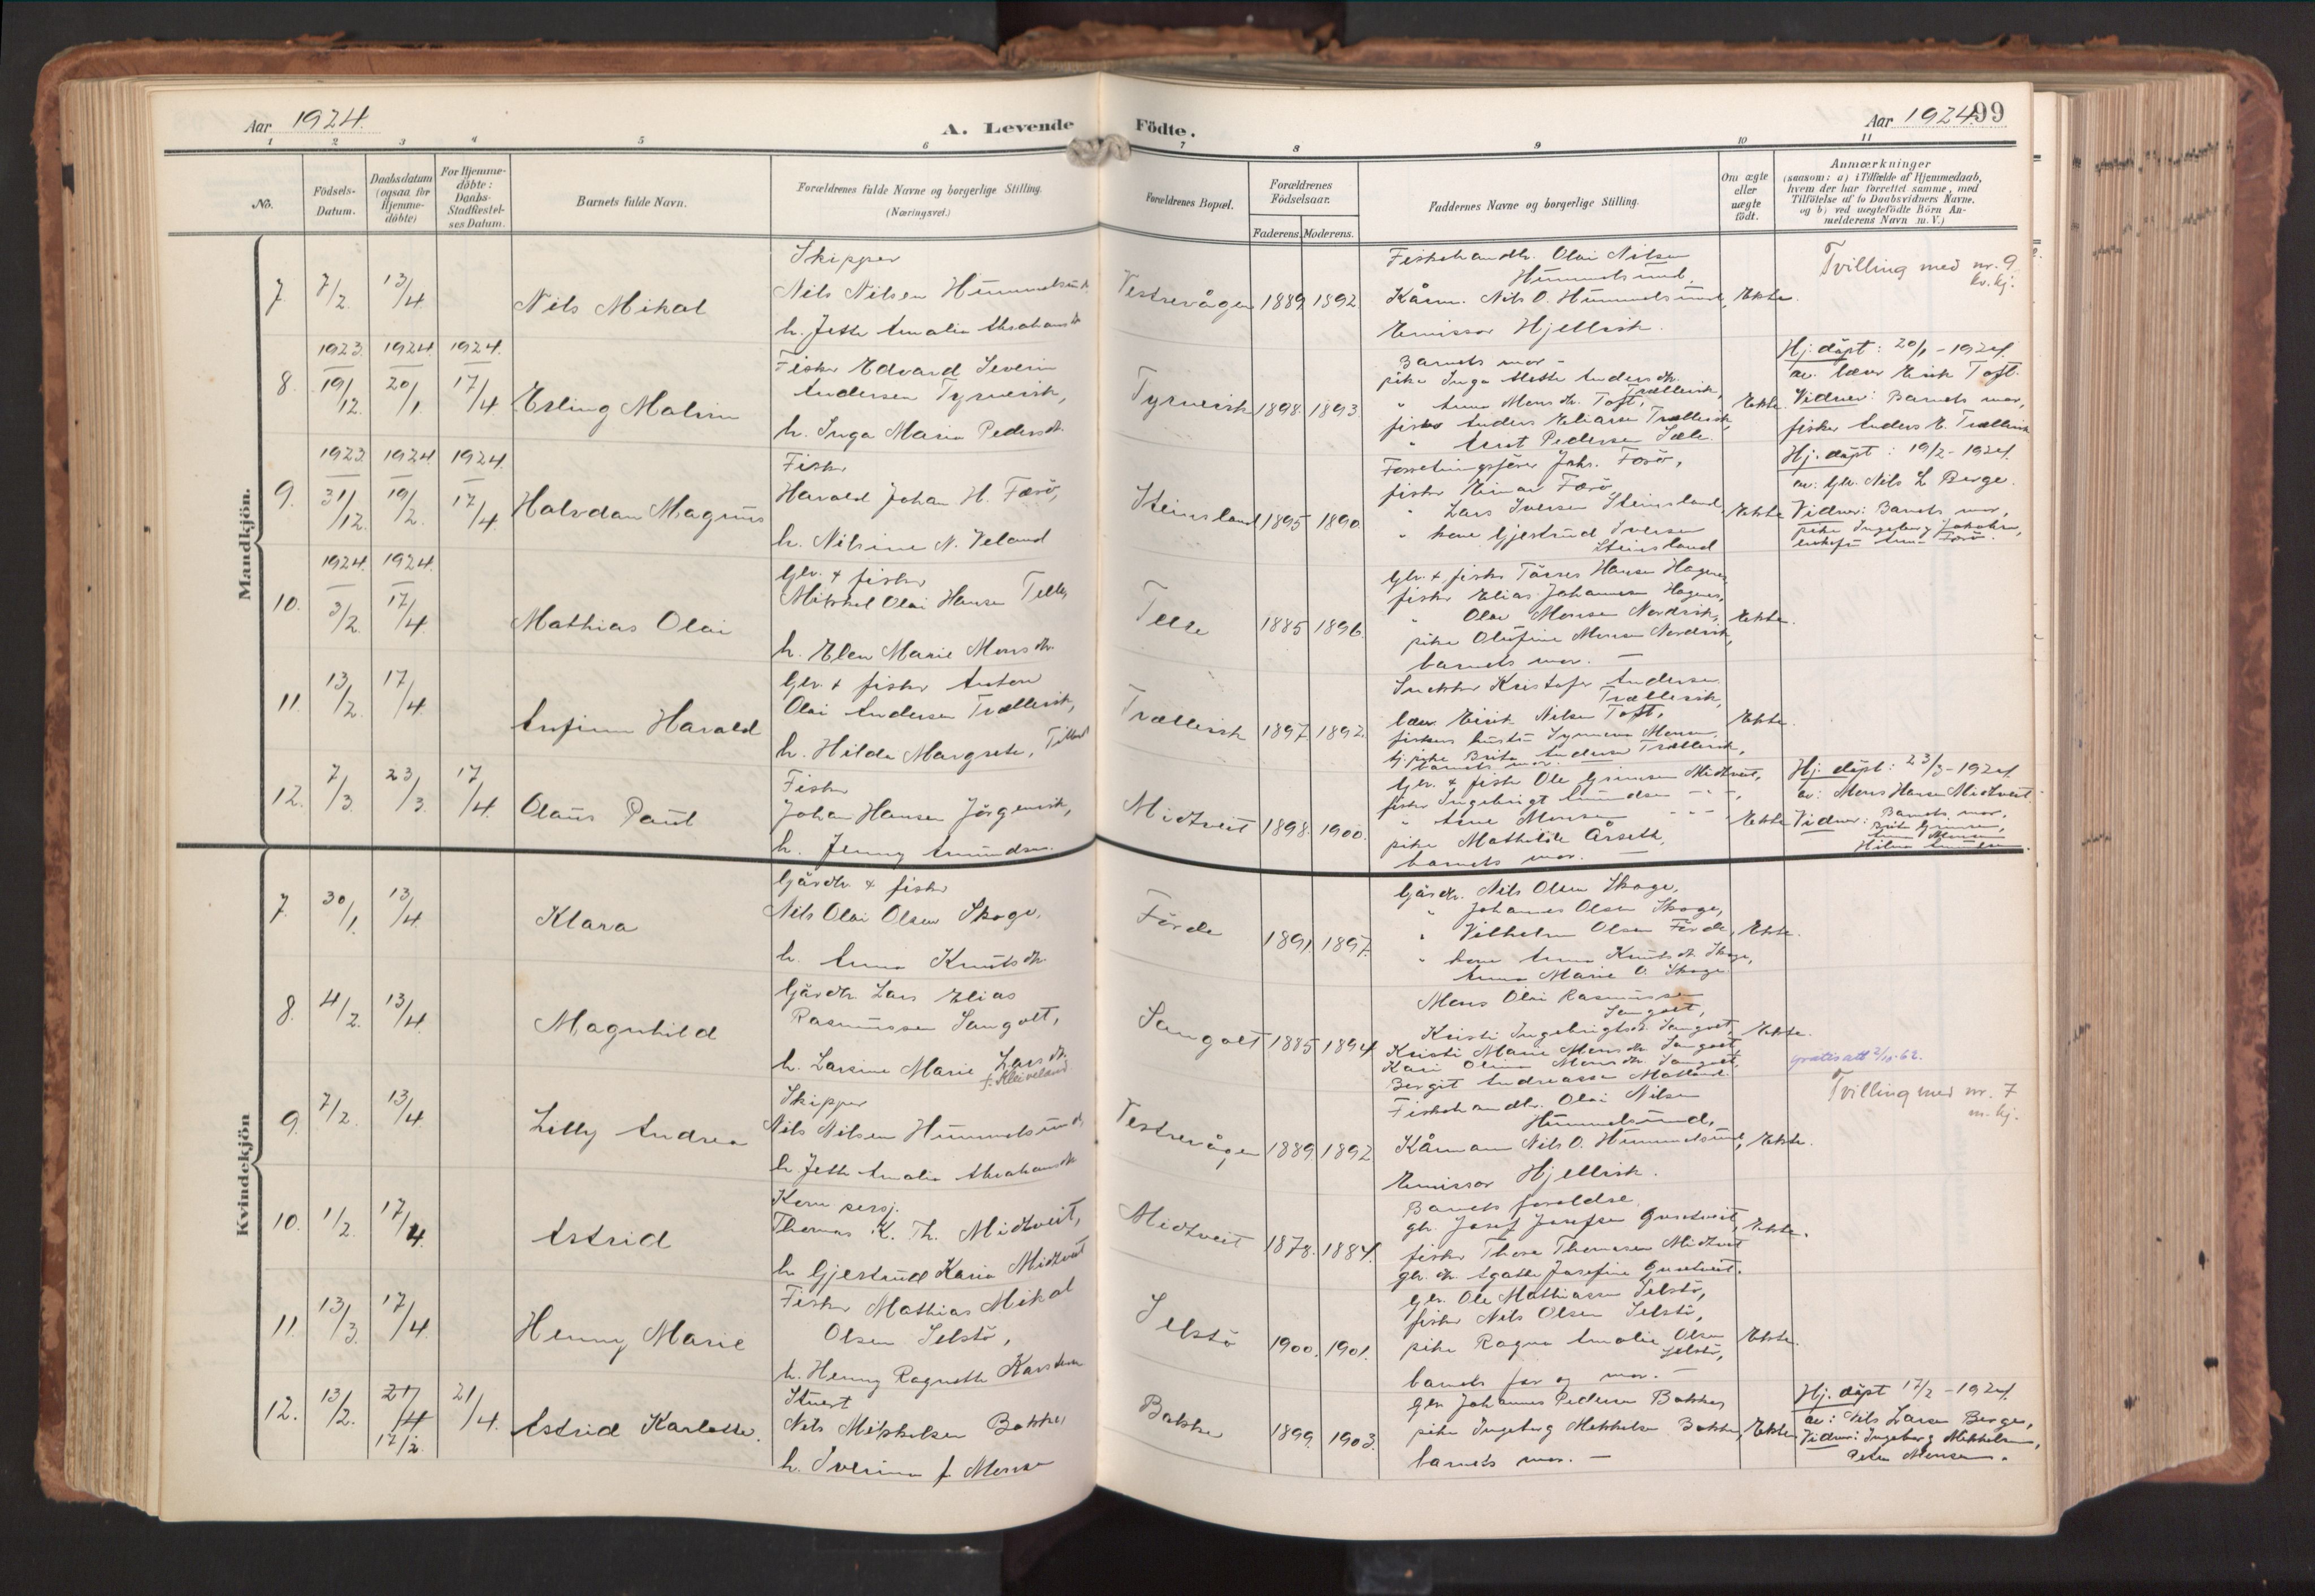 Aar 1924.
A. Levende Födte.
Aar 1924. 99
1 2 3 4 5 6 7 8 9 10 11
No.
Födsels-
Datum.
Daabsdatum
(ogsaa for
Hjemme-
döbte)
For Hjemme-
döbte:
Daabs-
Stadfæstel-
ses Datum.
Barnets fulde Navn.
Forældrenes fulde Navne og borgerlige Stilling.
(Næringsvei.)
Forældrenes Bopæl.
Forældrenes
Födselsaar.
Faderens. Moderens.
Faddernes Navne og borgerlige Stilling.
Om ægte
eller
uægte
födt.
Anmærkninger
(saasom: a) i Tilfælde af Hjemmedaab,
hvem der har forrettet samme, med
Tilföielse af to Daabsvidners Navne,
og b) ved uægtefödte Börn An-
melderens Navn m. V.)
Mandkjön.
7. 7/2 13/4 Nils Mikal
Skipper
Nils Nilsen Hummelsund
h. Jette Amalia Abrahamsdtr
Vestrevågen 1889 1892
Fiskehandlr. Olai Nilsen
Hummelsund,
Kårm. Nils O. Hummelsund,
Emissær Hjellvik.
Ekte.
Tvilling med nr. 9
kv. kj.
1923. 1924. 1924.
8. 19/12. 20/1. 17/4 Erling Malvin
Fisker Edvard Severin
Andersen Tyrnevik,
h. Inga Maria Pedersdtr.
Tyrnevik 1898. 1893.
Barnets mor -
pike Inga Mette Andersdtr.
Trællevik,
" Anna Monsdtr. Toft,
fisker Anders Eliasen Trællevik,
" Knut Pedersen Sæle.
Ekte.
Hj. döpt: 20/1 - 1924.
av. lærer Eirik Toft.
Vidner: Barnets mor,
fisker Anders E. Trællevik
1923. 1924. 1924.
9. 31/12. 19/2. 17/4 Halvdan Magnus
Fisker
Harald Johan H. Færö,
h. Nilsine N. Veland
Steinsland 1895 1890
Forretningsfører Johs. Færö,
fisker Einar Færö
" Lars Iversen Steinsland,
" kone Gjertrud Iversen
Steinsland
Ekte
Hj. döpt: 19/2 - 1924.
av. gbr. Nils L. Berge.
Vidner: Barnets mor,
pike Ingeborg Jakobsen,
enkefr. Anna Færö.
1924. 1924.
10. 3/2. 17/4. Mathias Olai
Gbr. & fisker
Mikkel Olai Hansen Telle,
h. Elen Marie Monsdtr.
Telle 1885 1896.
Gbr. & fisker Törres Hansen Hagenes,
fisker Elias Johannesen Hagenes,
" Olav Monsen Nordvik,
pike Olufine Monsen Nordvik,
barnets mor. -
Ekte.
11. 13/2. 17/4. Anfinn Harald
Gbr. & fisker Anton
Olai Andersen Trællevik,
h. Hilda Margrete,
Trællevik 1897. 1892.
Snekker Kristofer Andersen
Trællevik,
lærer Eirik Nilsen Toft,
fiskers hustru Synneva Monsen
tj. pike Brita Andersen Trællevik,
barnets mor.
Ekte.
12. 7/3. 23/3. 17/4. Olaus Paul
Fisker
Johan Hansen Jörgenvik,
h. Jenny Amundsen.
Midtveit 1898. 1900.
Gbr. & fisker Ole Grimsen Midtveit,
fisker Ingebrigt Amundsen - " - ,
" Arne Monsen - " -
pike Mathilde Årseth,
barnets mor.
Ekte
Hj. döpt: 23/3 - 1924.
av: Mons Hansen Midtveit
Vidner: Barnets mor,
Kvindekjön
7. 30/1. 13/4. Klara
Gårdbr. & fisker
Nils Olai Olsen Skoge,
h. Anna Knutsdtr.
Förde 1891. 1897.
Gårdbr. Nils Olsen Skoge,
" Johannes Olsen Skoge,
" Vilhelm Olsen Förde,
" kone Anna Knutsdtr. Skoge,
Anna Marie O. Skoge.
Ekte.
8. 4/2. 13/4. Magnhild
Gårdbr. Lars Elias
Rasmussen Sangolt,
h. Larsine Marie Larsdtr.
f. Kleiveland
Sangolt 1885 1894
Mons Olai Rasmussen
Sangolt,
Kristi Ingebrigtsdtr. Sangolt,
Kristi Marie Monsdtr. Sangolt,
Kari Olina Monsdtr. Sangolt,
Bergit Andreassen Matland.
Ekte.
gratis att 2/10-62.
9. 7/2. 13/4. Lilly Andrea
Skipper
Nils Nilsen Hummelsund,
h. Jette Amalia Abrahamsdtr
Vestrevågen 1889 1892
Fiskehandlr. Olai Nilsen
Hummelsund,
Kårmann Nils O. Hummelsund,
Emissær Hjellvik.
Ekte.
Tvilling med nr. 7
m. kj.
10. 1/2. 17/4. Astrid
Kom. sersj.
Thomas K. Th. Midtveit,
h. Gjertrud Karia Midtveit
Midtveit 1878. 1884.
Barnets foreldre
gbr. Josef Josefsen Gunstveit,
fisker Thore Thomassen Midtveit
gbr. dtr. Agathe Josefine Gunstveit.
Ekte.
11. 13/3. 17/4. Henny Marie
Fisker Mathias Mikal
Olsen Selstö,
h. Henny Ragnette Karstensen
Selstö 1900. 1901.
Gbr. Ole Mathiassen Selstö,
fisker Nils Olsen Selstö,
pike Ragna Amalie Olsen
Selstö,
barnets far og mor. -
Ekte.
12. 13/2. 21/4 17/2. 21/4. Astrid Karlotte.
Stuert
Nils Mikkelsen Bakke,
h. Severina f. Monsen
Bakke 1899. 1903.
Gbr. Johannes Pedersen Bakke,
pike Ingeborg Mikkelsen Bakke,
barnets mor. -
Ekte.
Hj. döpt 17/2 - 1924.
av: Nils Larsen Berge,
Vidner: Ingeborg Mikkelsen,
Monsen.